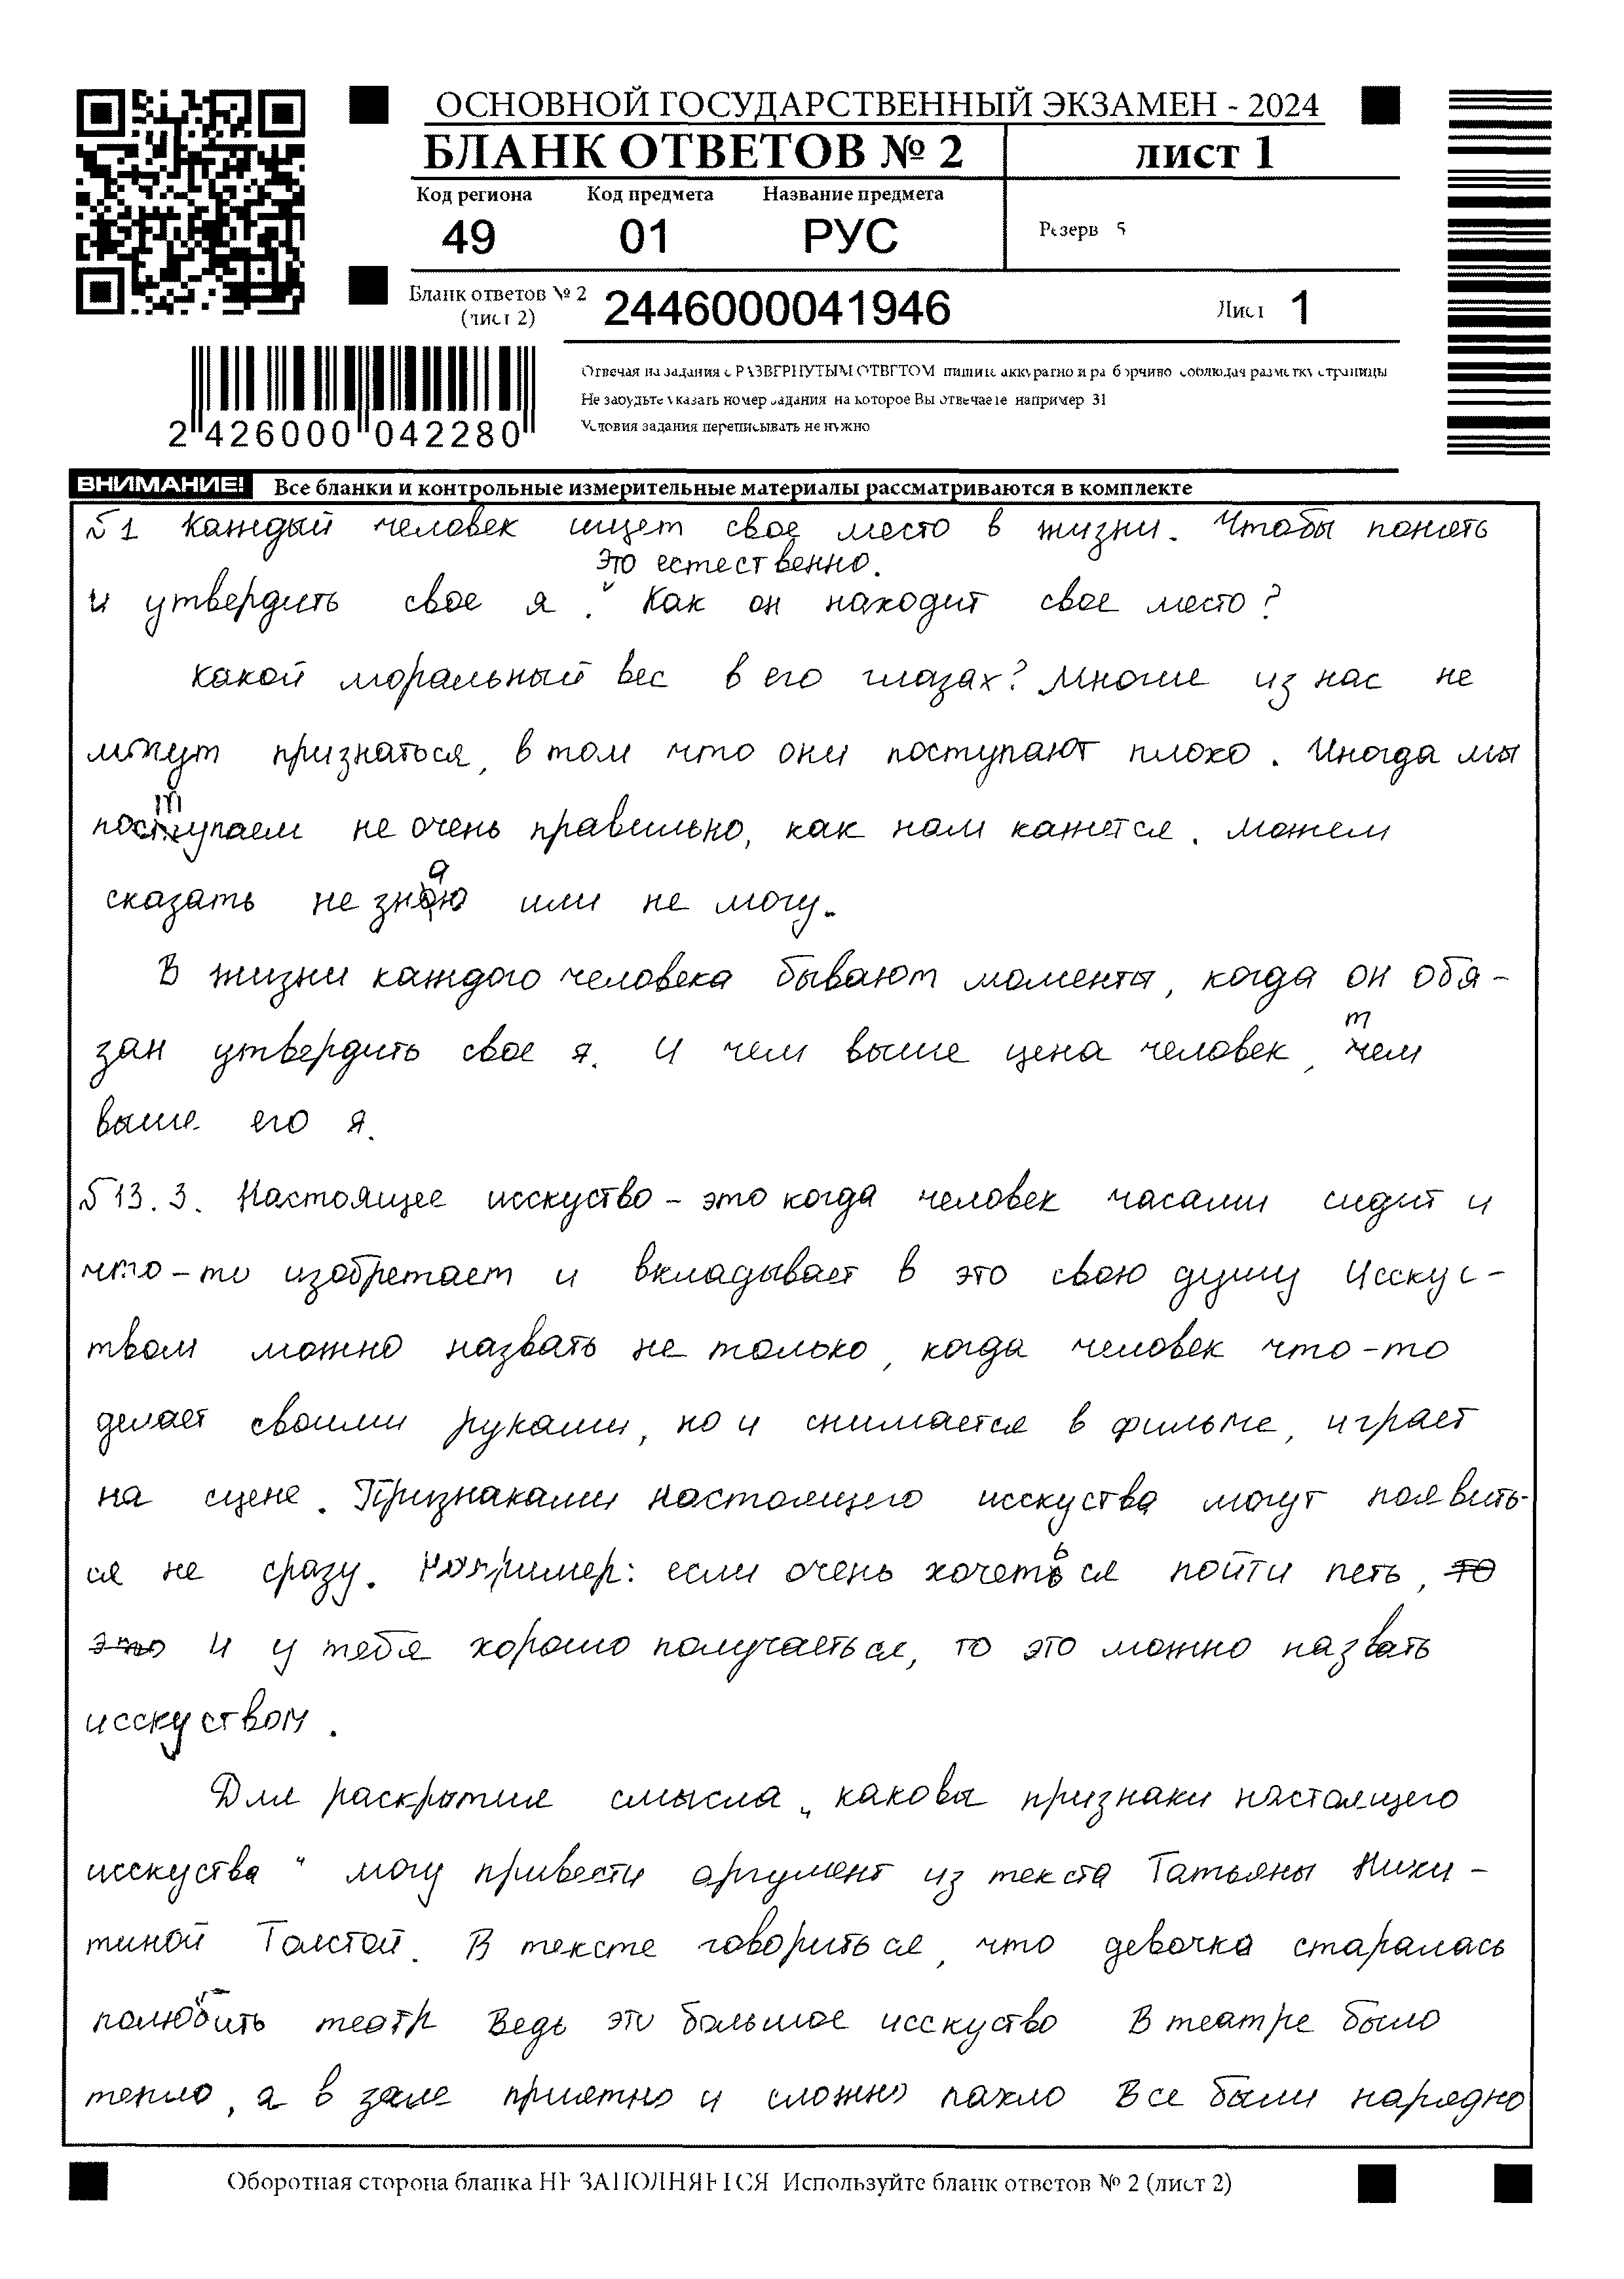 ОСНОВНОЙ ГОСУДАРСТВЕННЫЙ ЭКЗАМЕН - 2024
БЛАНК ОТВЕТОВ № 2 ЛИСТ 1
Код региона Код предмета Название предмета
49 01 РУС
Резерв - 5
Бланк ответов № 2
(лист 2)
2446000041946
Лист 1
Отвечая на задания с РАЗВЕРНУТЫМ ОТВЕТОМ пишите аккуратно и разборчиво соблюдая разметку страницы
Не забудьте указать номер задания на которое Вы отвечаете например 31
Условия задания переписывать не нужно
2 426000 042280
ВНИМАНИЕ! Все бланки и контрольные измерительные материалы рассматриваются в комплекте
§1 Каждый человек ищет свое место в жизни. Чтобы понять
это естественно.
и утвердить свое я . Как он находит свое место?
Какой моральный вес в его глазах? Многие из нас не
могут признаться, в том что они поступают плохо . Иногда мы
поступаем не очень правильно, как нам кажется. Можем
сказать не знаю или не могу.
В жизни каждого человека бывают моменты, когда он обя-
зан утвердить свое я. И чем выше цена человек, тем
выше его я.
§13.3. Настоящее исскуство - это когда человек часами сидит и
что-то изобретает и вкладывает в это свою душу Исскус-
твом можно назвать не только, когда человек что-то
делает своими руками, но и снимается в фильме, играет
на сцене. Признаками настоящего исскуства могут появить-
ся не сразу. Например: если очень хочеться пойти петь, то
это И у тебя хорошо получаеться, то это можно назвать
исскуством.
Для раскрытия смысла „каковы признаки настоящего
исскуства" могу привести аргумент из текста Татьяны Ники-
тиной Толстой. В тексте говориться, что девочка старалась
полюбить театр Ведь это большое исскуство В театре было
тепло, а в зале приятно и сложно пахло Все были нарядно
Оборотная сторона бланка НЕ ЗАПОЛНЯЕТСЯ Используйте бланк ответов № 2 (лист 2)